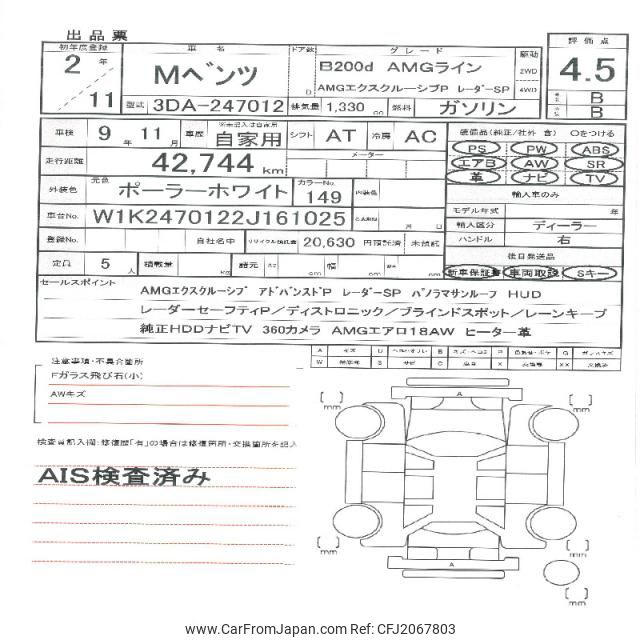 出品票
初年度登録 車名 ドア数 グレード 駆動 評価点
2年 11 Mベンツ D B200d AMGライン 2WD 4.5
AMGエクスクルーシブP レーダーSP 4WD
型式 3DA-247012 排気量 1,330 cc 燃料 ガソリン B
B
車検 9年 11月 車歴 自家用 シフト AT 冷房 AC
装備品(純正/社外 含) Oをつける
PS PW ABS
走行距離 42,744 km メーター
エアB AW SR
革 ナビ TV
外装色 元色 ポーラーホワイト カラーNo. 149 内装色
輸入車のみ
モデル年式 年
車台No. W1K2470122J161025 月 日
輸入区分 ディーラー
登録No. 自社名中 リサイクル預託金 20,630 円預託済 未預託
ハンドル 右
後日発送品
定員 5人 積載量 kg 諸元 長さ cm 幅 cm cm
新車保証書 車両取説 Sキー
セールスポイント
AMGエクスクルーシブ アドバンストP レーダーSP パノラマサンルーフ HUD
レーダーセーフティP/ディストロニック/ブラインドスポット/レーンキープ
純正HDDナビTV 360カメラ AMGエアロ18AW ヒーター革
注意事項・不具合箇所
Fガラス飛び石(小)
AWキズ
検査員記入欄:修復歴「有」の場合は修復箇所・交換箇所を記入
AIS検査済み
A キズ U B P G
W S サビ C X XX
A
[ ] mm
[ ] mm
[ ] mm
[ ] mm
A
[ ] mm
© www.CarFromJapan.com Ref: CFJ2067803